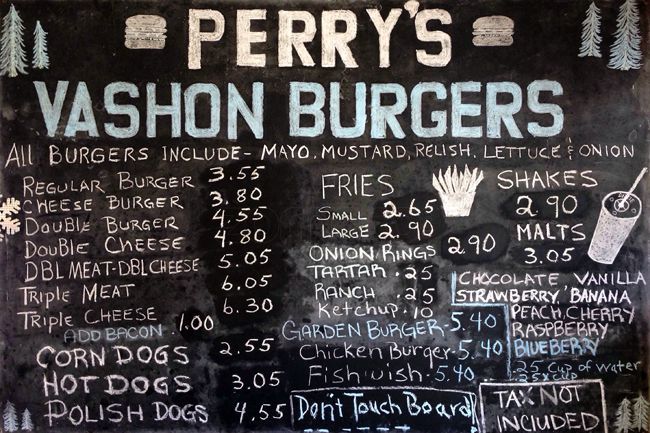 PERRY'S
VASHON BURGERS
ALL BURGERS INCLUDE - MAYO, MUSTARD, RELISH, LETTUCE & ONION
REGULAR BURGER 3.55
CHEESE BURGER 3.80
DOUBLE BURGER 4.55
DOUBLE CHEESE 4.80
DBL MEAT-DBL CHEESE 5.05
TRIPLE MEAT 6.05
TRIPLE CHEESE 6.30
ADD BACON .1.00
CORN DOGS 2.55
HOT DOGS 3.05
POLISH DOGS 4.55
FRIES
SMALL 2.65
LARGE 2.90
ONION RINGS 2.90
TARTAR .25
RANCH .25
Ketchup .10
GARDEN BURGER - 5.40
Chicken Burger - 5.40
Fishwish . 5.40
Don't Touch Board
SHAKES
2.90
MALTS
3.05
CHOCOLATE VANILLA
STRAWBERRY, BANANA
PEACH, CHERRY
RASPBERRY
BLUEBERRY
.25 Cup of water
TAX NOT
INCLUDED